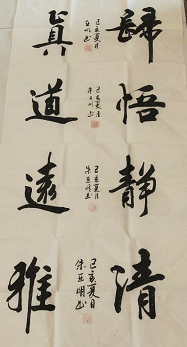 歸真
己亥夏月
亚明书
悟道
己亥夏月
朱亚明书
静遠
己亥夏月
朱亚明书
清雅
己亥夏日
朱亚明书